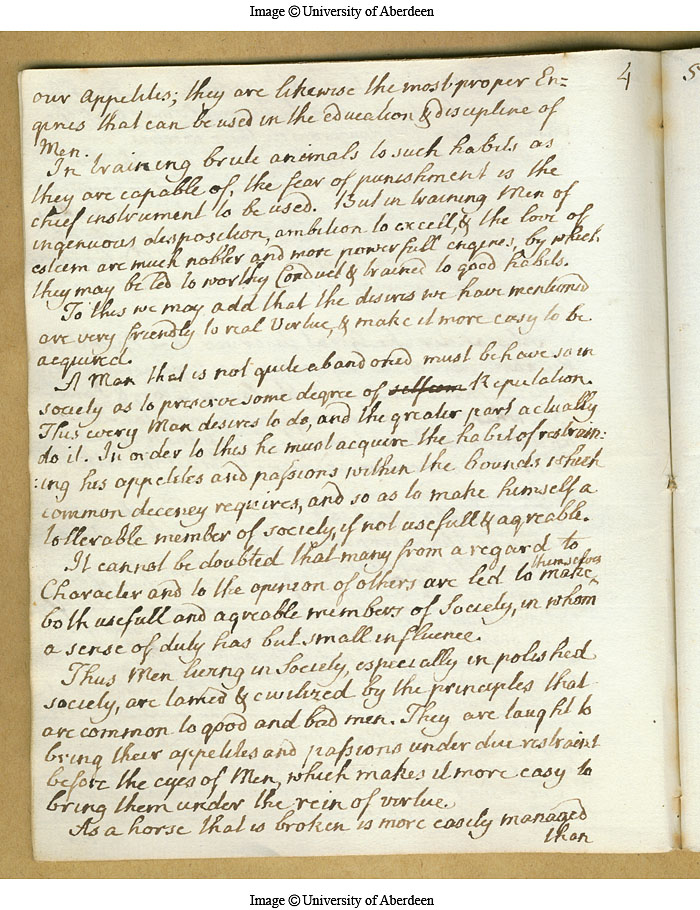 Image © University of Aberdeen
4
our appetites; they are likewise the most proper En=
gines that can be used in the education & discipline of
Men.
In training brute animals to such habits as
they are capable of, the fear of punishment is the
chief instrument to be used. But in training Men of
ingenuous disposition, ambition to excell, & the love of
esteem are much nobler and more powerfull engines, by which
they may be led to worthy Conduct & trained to good habits.
To this we may add that the desires we have mentioned
are very friendly to real Virtue, & make it more easy to be
acquired.
A Man that is not quite abandoned must behave so in
society as to preserve some degree of Reputation.
This every Man desires to do, and the greater part actually
do it. In order to this he must acquire the habit of restrain:
:ing his appetites and passions within the bounds which
common decency requires, and so as to make himself a
tollerable member of society, if not usefull & agreable.
It cannot be doubted that many from a regard to
Character and to the opinion of others are led to make themselves
both usefull and agreable members of Society, in whom
a sense of duty has but small influence.
Thus Men living in Society, especially in polished
society, are tamed & civilized by the principles that
are common to good and bad men. They are taught to
bring their appetites and passions under due restraint
before the eyes of Men, which makes it more easy to
bring them under the rein of virtue.
As a horse that is broken is more easily managed
than
Image © University of Aberdeen